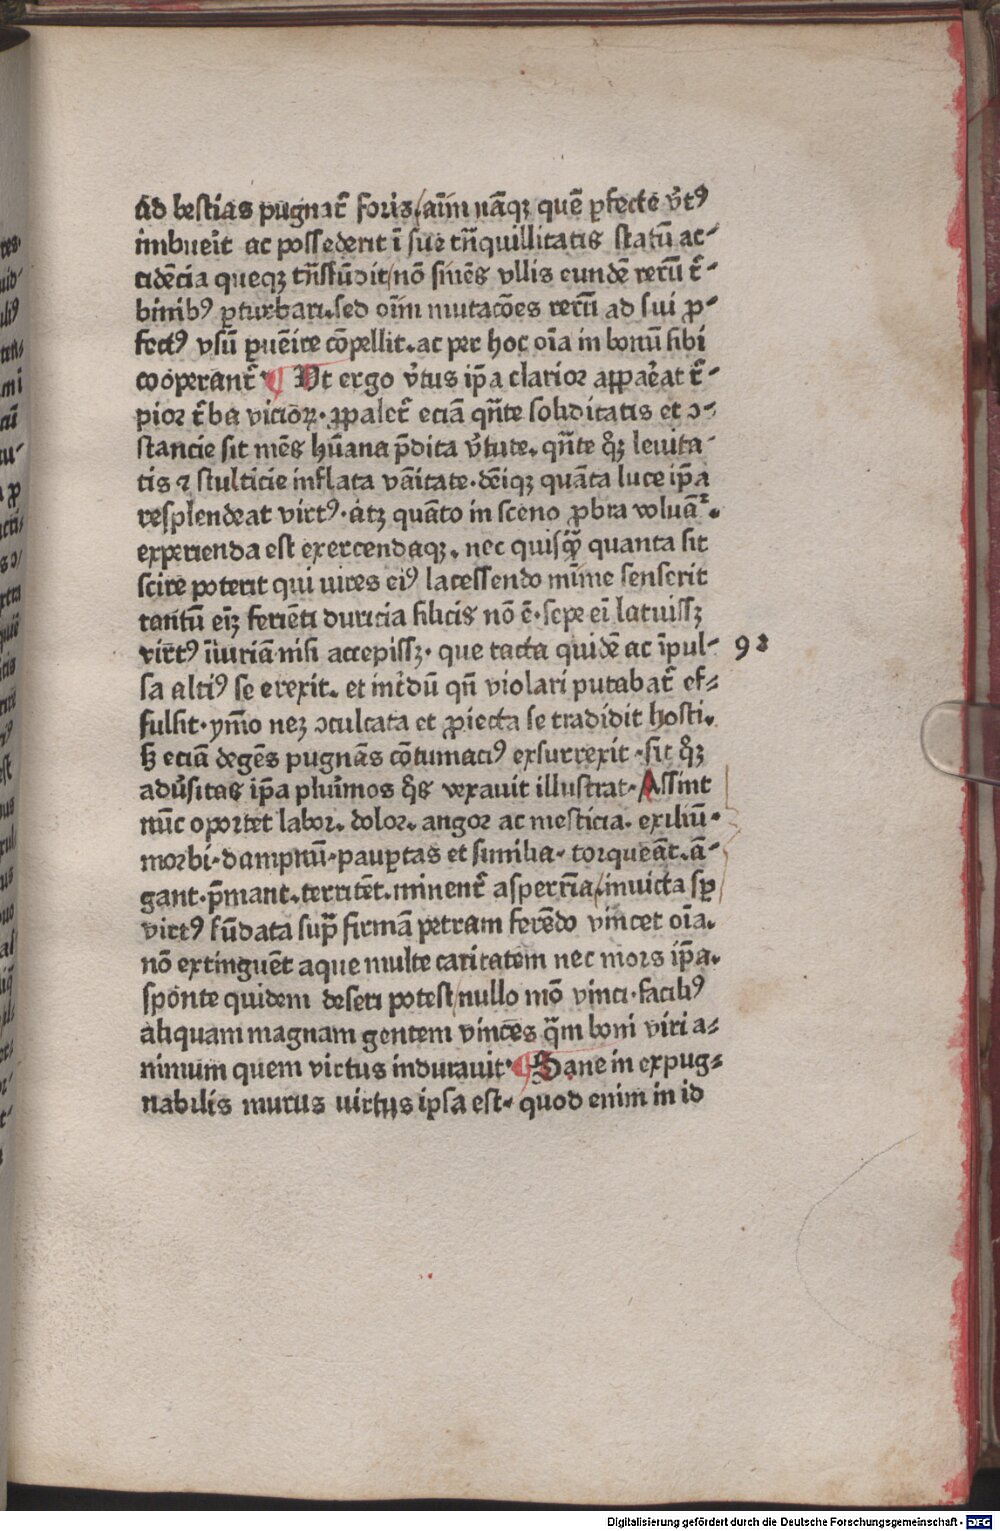 ad bestias pugnat᷑ foris / aīm nāqꝫ quē ꝑfecte v̓tꝰ
imbuerit ac possederit ī sue tn̄quillitatis statū ac⸗
cidēcia queqꝫ tn̄sfūdit / nō sinēs vllis eundē rerū t᷑⸗
binibꝰ ꝑturbari. sed oīm mutacōes rerū ad sui ꝓ⸗
fectꝰ vsū ꝑuēire cōpellit. ac per hoc oīa in bonū sibi
cooperant᷑ ¶ Ut ergo v̓tus ip̄a clarior appareat t᷑⸗
pior t᷑ba vicioꝝ. ꝓpalet᷑ eciā qn̄te soliditatis et ↄ⸗
stancie sit mēs hūana p̄dita v̓tute. qn̄te qꝫ leuita⸗
tis ⁊ stulticie inflata vāitate. dēiqꝫ quāta luce ip̄a
resplendeat virtꝰ. atꝫ quāto in sceno ꝓbra voluāt᷑.
experienda est exercendaqꝫ. nec quisqͣꝫ quanta sit
scire poterit qui vires eiꝰ lacessendo mīme senserit
tantū eīꝫ feriēti duricia silicis nō ē. sepe eī latuissꝫ
virtꝰ īiuriā nisi accepissꝫ. que tacta quidē ac īpul⸗
sa altiꝰ se erexit. et int̓dū qn̄ violari putabat᷑ ef⸗
fulsit. ymmo neꝫ ↄculcata et ꝓiecta se tradidit hosti.
sꝫ eciā degēs pugnās cōtumaciꝰ exsurrexit. sic qꝫ
adu̓sitas ip̄a plurimos qͦs vexauit illustrat. Assint
nūc oportet labor. dolor. angor ac mesticia. exiliū.
morbi. dampnū. pauꝑtas et similia. torqueāt. ā⸗
gant. p̄mant. territēt. minent᷑ asperrīa / inuicta sꝑ
virtꝰ fūdata supͣ firmā petram ferēdo vincet oīa.
nō extinguēt aque multe caritatem nec mors ip̄a.
sponte quidem deseri potest / nullo mō vinci. faciliꝰ
aliquam magnam gentem vinces qͣm boni viri a⸗
nimum quem virtus indurauit. ¶ Sane in expug⸗
nabilis murus virtus ipsa est. quod enim in id
92
Digitalisierung gefördert durch die Deutsche Forschungsgemeinschaft - DFG